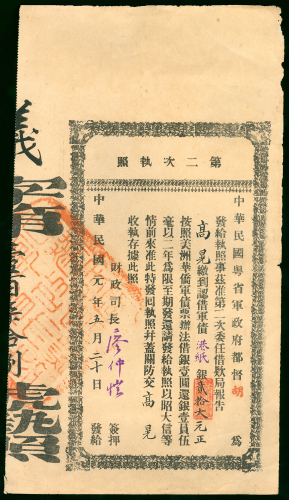 第二次執照
中華民國粵省軍政府都督胡 為
發給執照事茲准第二次委任借數局報告
高晃繳到認借軍債港紙銀貳拾大元正
按照美洲華僑軍債票辦法借銀壹圓還銀壹員伍
毫以二年為限至期發還請發給執照以昭大信等
情前來准此特發回執照并蓋關防交高晃
收執存據此照
財政司長廖仲愷 簽押
中華民國元年五月二十日 發給
義字第
號